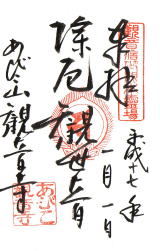 奉拝
平成十七年
一月一日
除厄観世音
あびこ山観音寺
あびこ
観音寺